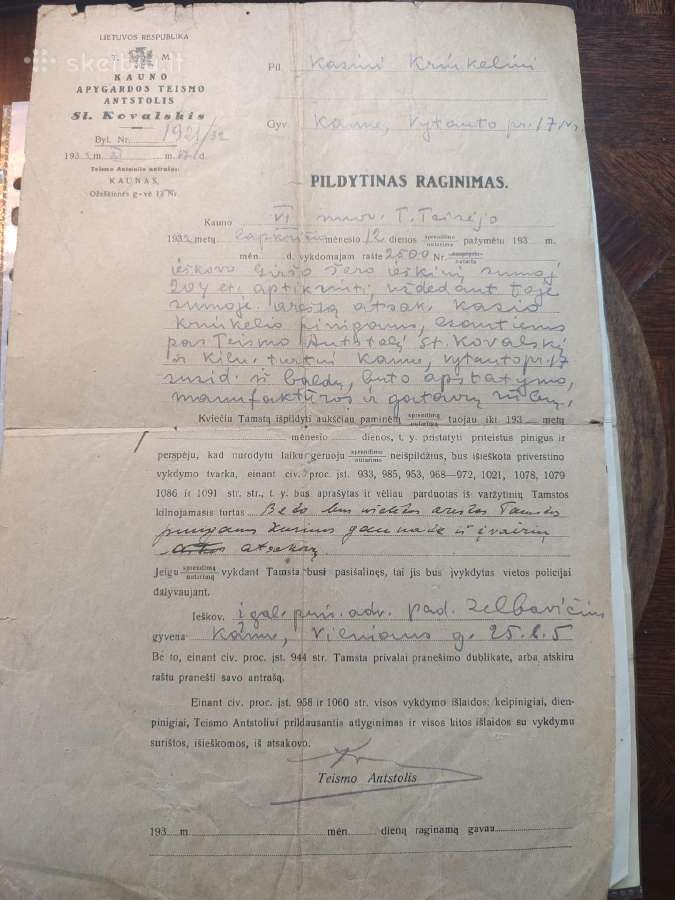 LIETUVOS RESPUBLIKA
T. M.
KAUNO
APYGARDOS TEISMO
ANTSTOLIS
St. Kovalskis
Byl. Nr. 1921/32
193 m. m. d.
Teismo Antstolio antrašas:
KAUNAS,
Ožeškienės g-vė 12 Nr.
skelbiu.lt
Pil. Kaziui Krinkeliui
Gyv. Kaune, Vytauto pr. 17 Nr.
PILDYTINAS RAGINIMAS.
Kauno VI nuov. T. Teisėjo
1932 metų lapkričio mėnesio 12 dienos sprendimo nutarimo pažymėtu 193 m.
mėn. d. vykdomajam rašte 2500 Nr. sprendimo nutarta
ieškovo Giršo Šero ieškinį sumoj
204 et. aptikrinti, uždedant toje
sumoje areštą atsak. Kazio
Krinkelio pinigams, esantiems
pas Teismo Antstolį St. Kovalskį
ir kiln. turtui Kaune, Vytauto pr. 17
susid. iš baldų, buto apstatymo,
manufaktūros ir gatavų
Kviečiu Tamstą išpildyti aukščiau paminėtą sprendimą nutarimą tuojau iki 193 metų
mėnesio dienos, t. y. pristatyti priteistus pinigus ir
perspėju, kad nurodytu laiku geruoju sprendimo nutarimo neišpildžius, bus išieškota priverstino
vykdymo tvarka, einant civ. proc. įst. 933, 985, 953, 968—972, 1021, 1078, 1079
1086 ir 1091 str. str., t. y. bus aprašytas ir vėliau parduotas iš varžytinių Tamstos
kilnojamasis turtas Be to bus uždėtas areštas Tamstos
pinigams kuriuos gaunate iš įvairių
atsakovų
Jeigu sprendimą nutarimą vykdant Tamsta busi pasišalinęs, tai jis bus įvykdytas vietos policijai
dalyvaujant.
Ieškov. įgal. pris. adv. pad. Zelbavičius
gyvena Kaune, Vilniaus g. 25 b. 5
Be to, einant civ. proc. įst. 944 str. Tamsta privalai pranešimo dublikate, arba atskiru
raštu pranešti savo antrašą.
Einant civ. proc. įst. 958 ir 1060 str. visos vykdymo išlaidos: kelpinigiai, dien-
pinigiai, Teismo Antstoliui prildausantis atlyginimas ir visos kitos išlaidos su vykdymu
surištos, išieškomos, iš atsakovo.
Teismo Antstolis
193 m mėn. dieną raginamą gavau